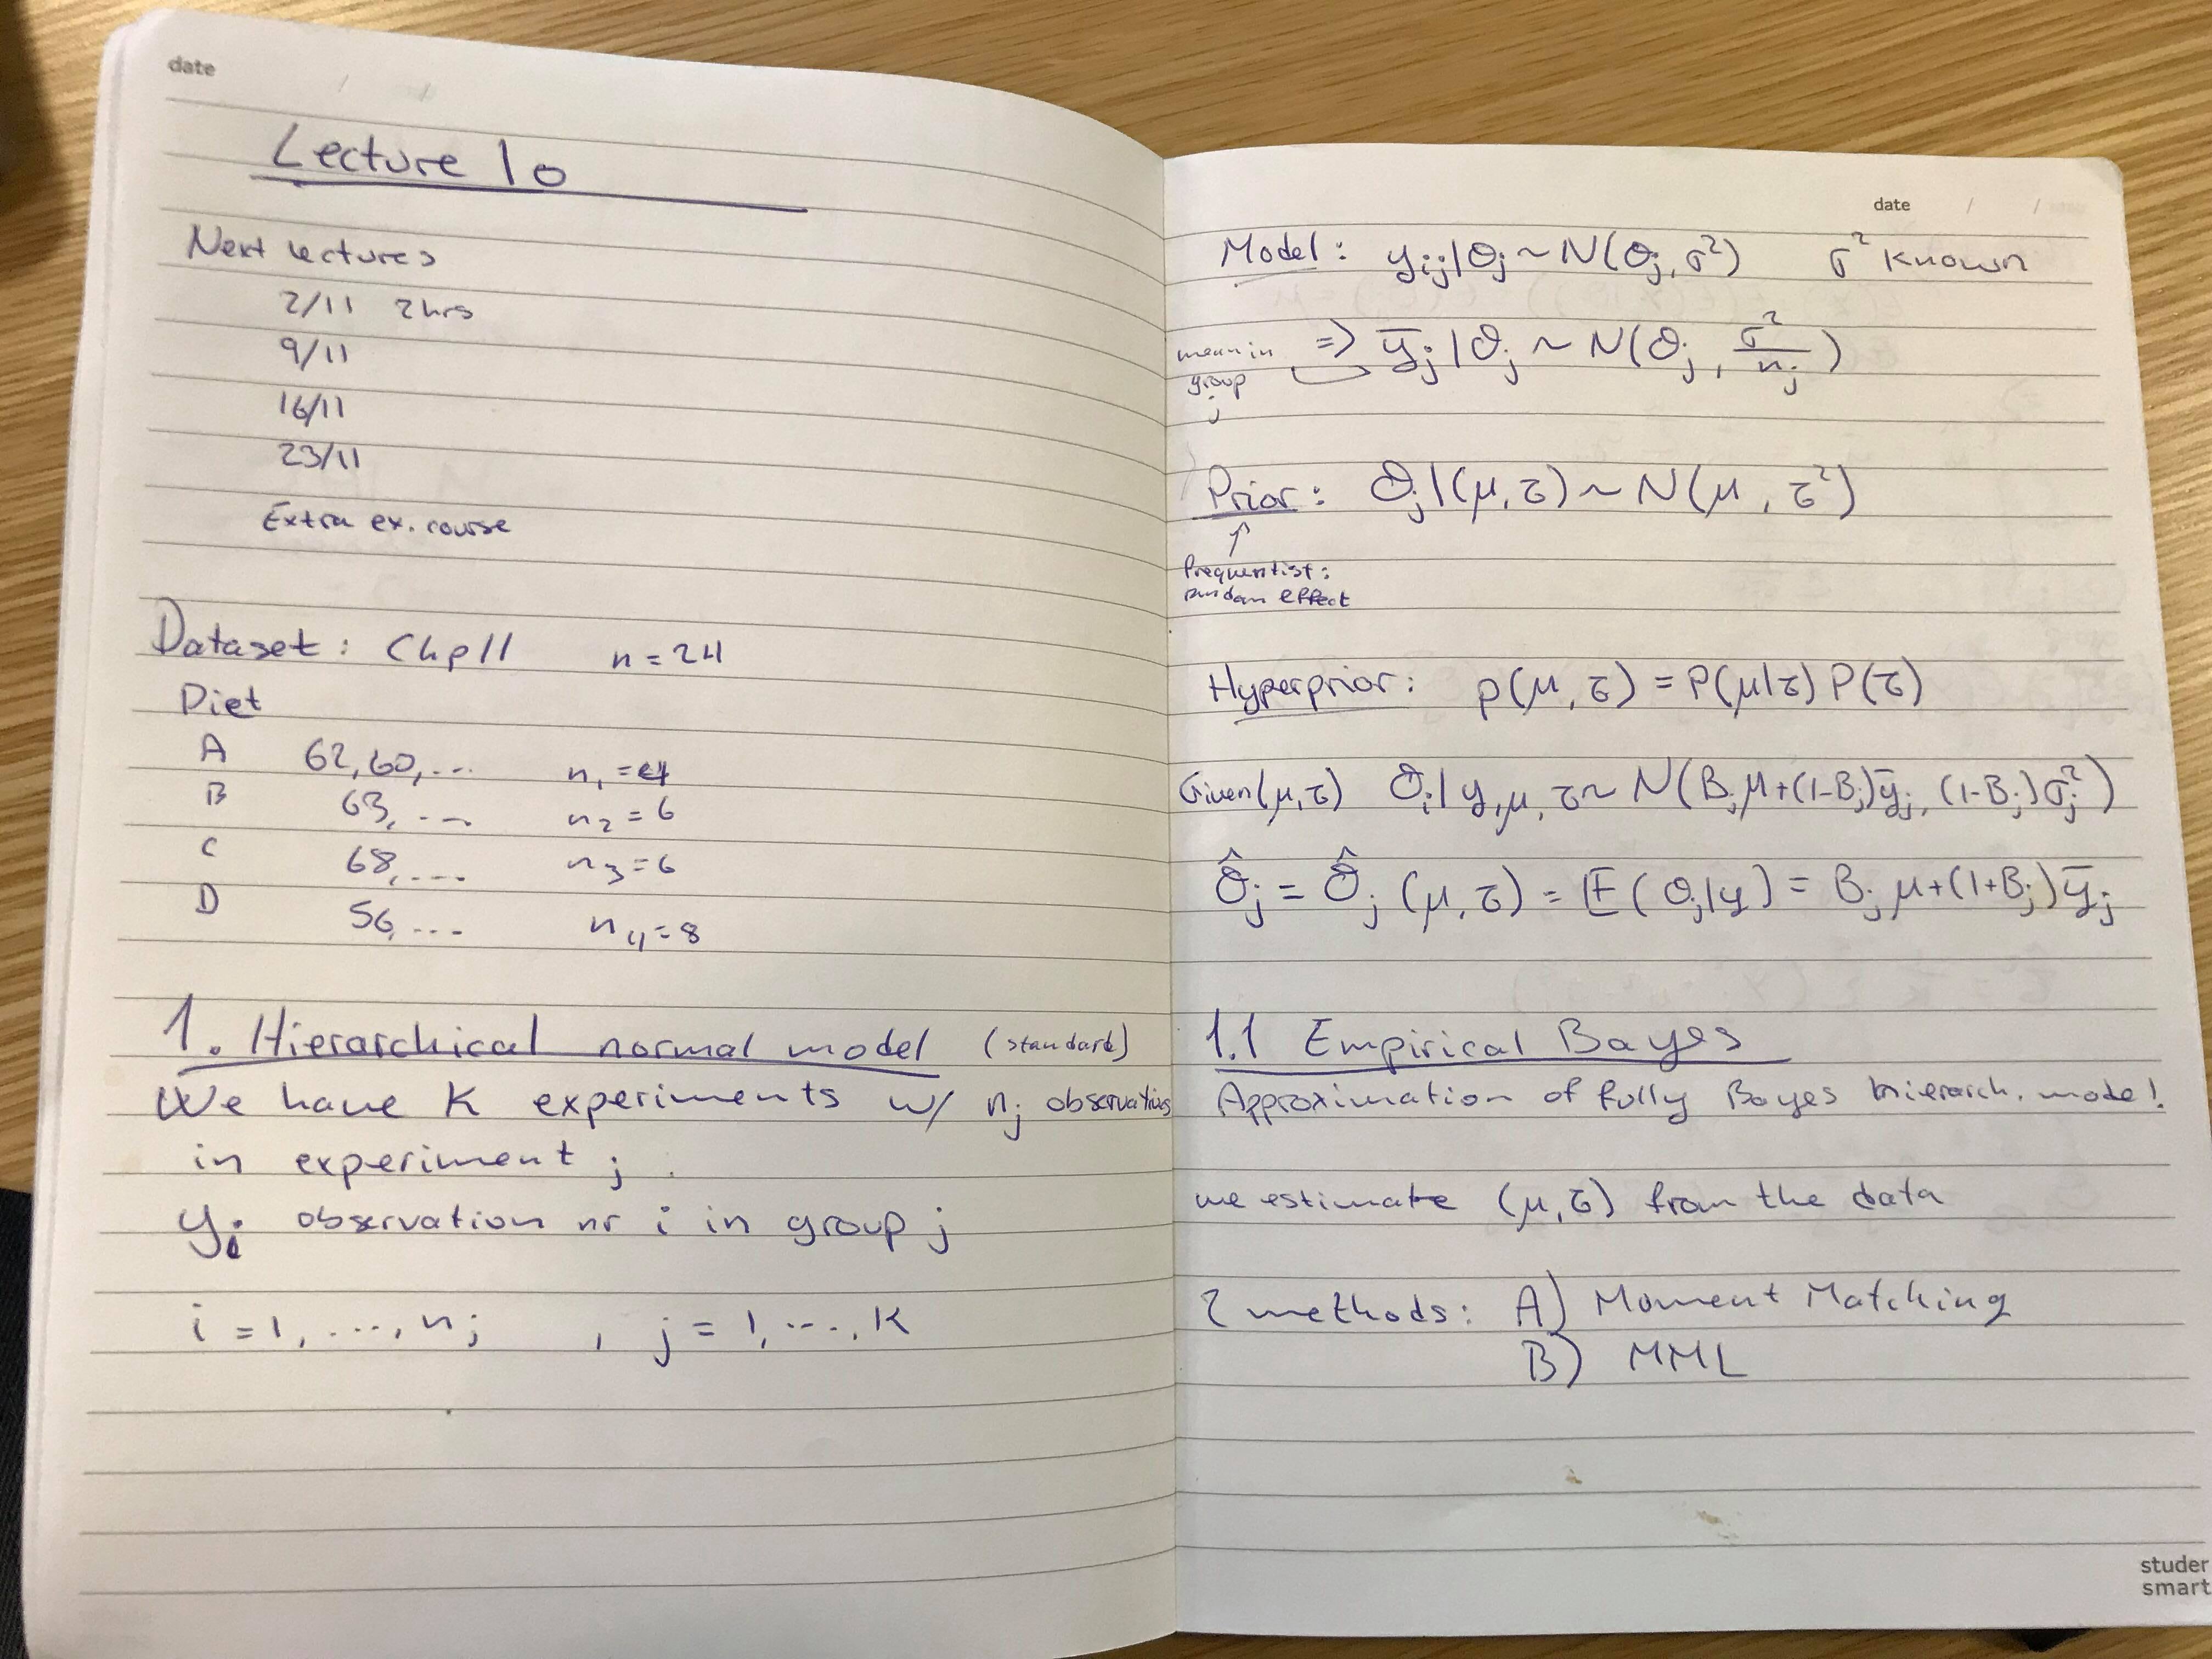 date
Lecture 10
Next lectures
2/11 2hrs
9/11
16/11
23/11
Extra ex. course
Dataset: Chp11 n=24
Diet
A 62,60,... n₁=4
B 63,... n₂=6
C 68,.... n₃=6
D 56,... n₄=8
1. Hierarchical normal model (standard)
We have K experiments w/ nⱼ observations
in experiment j.
yᵢⱼ observation nr i in group j
i=1,...,nⱼ , j=1,...,K
date / /
Model: yᵢⱼ|θⱼ~N(θⱼ,σ²) σ² known
mean in => ȳⱼ|θⱼ ~ N(θⱼ, σ²/nⱼ)
group
j
Prior: θⱼ|(μ,τ)~N(μ, τ²)
↑
frequentist:
random effect
Hyperprior: p(μ,τ)=P(μ|τ)P(τ)
Given(μ,τ) θⱼ|y,μ,τ~N(Bⱼμ+(1-Bⱼ)ȳⱼ, (1-Bⱼ)σⱼ²)
θ̂ⱼ = θ̂ⱼ(μ,τ) = E(θⱼ|y) = Bⱼμ+(1+Bⱼ)ȳⱼ
1.1 Empirical Bayes
Approximation of fully Bayes hierarch. model.
we estimate (μ,τ) from the data
2 methods: A) Moment Matching
B) MML
studer
smart